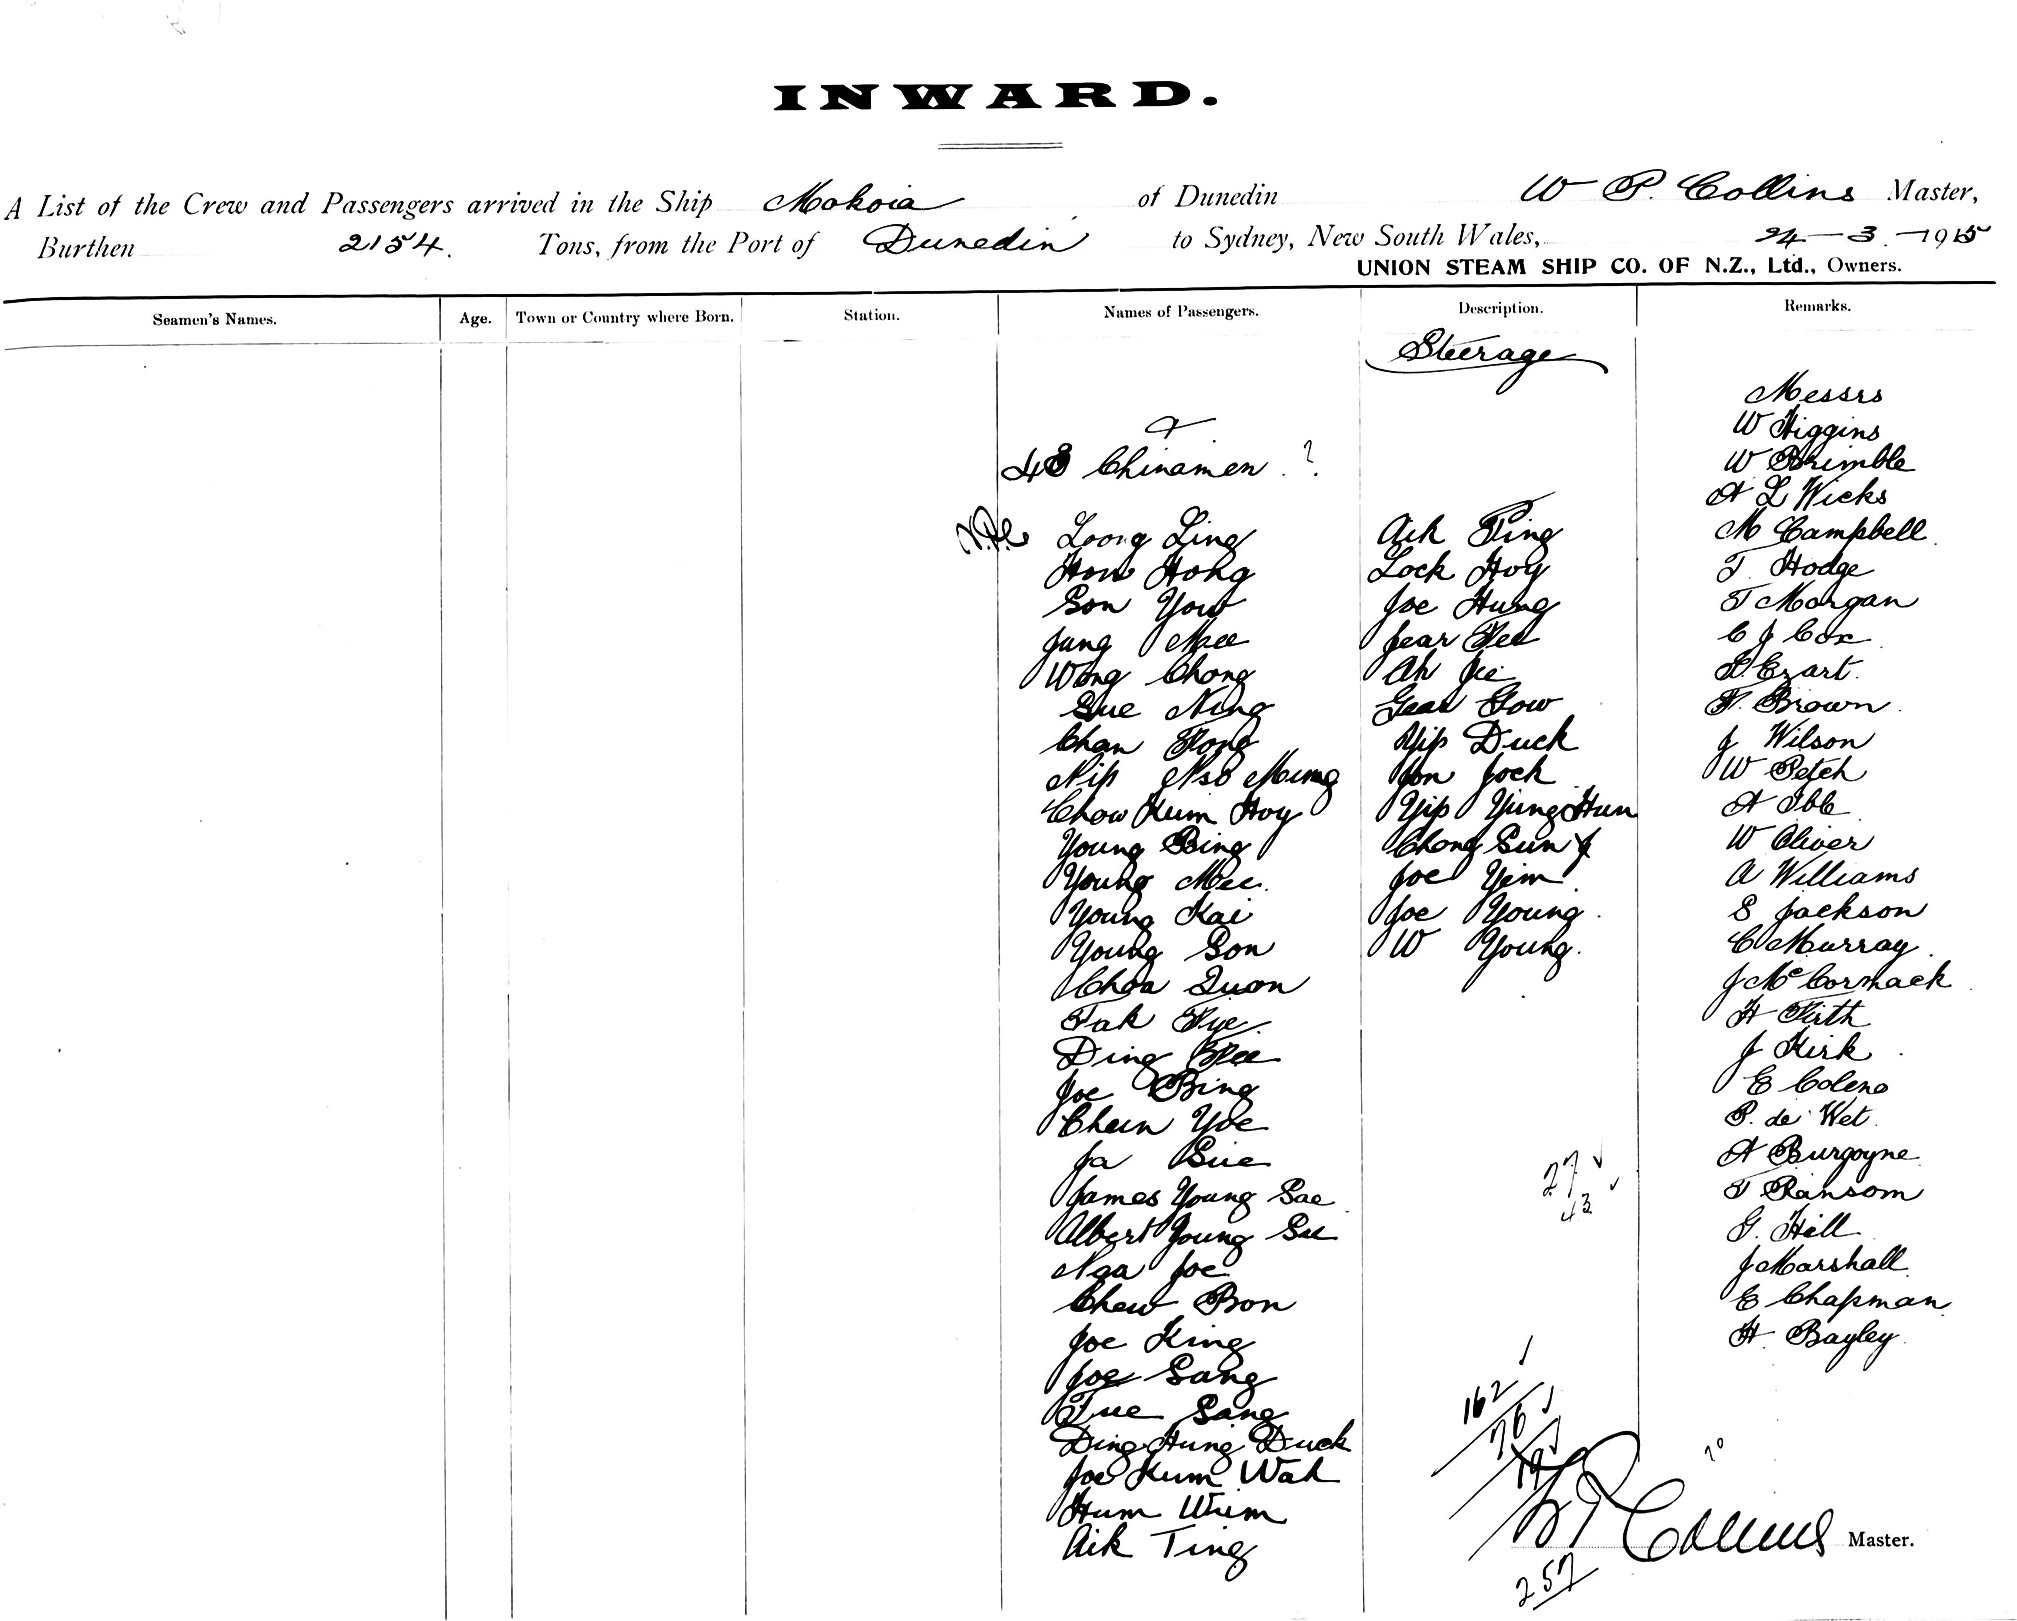 INWARD.
A List of the Crew and Passengers arrived in the Ship Mokoia of Dunedin W P. Collins Master,
Burthen 2154. Tons, from the Port of Dunedin to Sydney, New South Wales, 24-3-1915
UNION STEAM SHIP CO. OF N.Z., Ltd., Owners.
Seamen's Names. Age. Town or Country where Born. Station. Names of Passengers. Description. Remarks.
Steerage
43 Chinamen ?
Loong Ling
How Hong
Son Yow
Jung Mee
Wong Chong
Sue Ning
Chan Fong
Nip Nso Mung
Chow Kum Hoy
Young Bing
Young Mee
Young Kai
Young Son
Choa Quon
Tak Fye
Ding Fee
Joe Bing
Chun Yoe
Ja Sue
James Young Sae
Albert Young Su
Naa Joe
Chew Bon
Joe King
Joe Sang
Tue Sang
Ding Hung Duck
Joe Kum Wah
Hum Wum
Aik Ting
Aik Ting
Lock Hoy
Joe Hung
Jear Fee
Ah Jie
Gear Gow
Yip Duck
Yon Jock
Yip Yung Hun
Chong Sun
Joe Yim
Joe Young.
W Young.
27
43
162
76
19
257
Messrs
W Higgins
W Brimble
A L Wicks
M Campbell
T Hodge
T Morgan
C J Cox
D Ezart.
F. Brown
J Wilson
W Petch
A Ible
W Oliver
A Williams
S Jackson
C Murray
J McCormack
H Firth
J Kirk
E Coleno
P. de Wet
A Burgoyne
T Ransom
G. Hill
J Marshall
E Chapman
H Bayley
70
W P Collins Master.